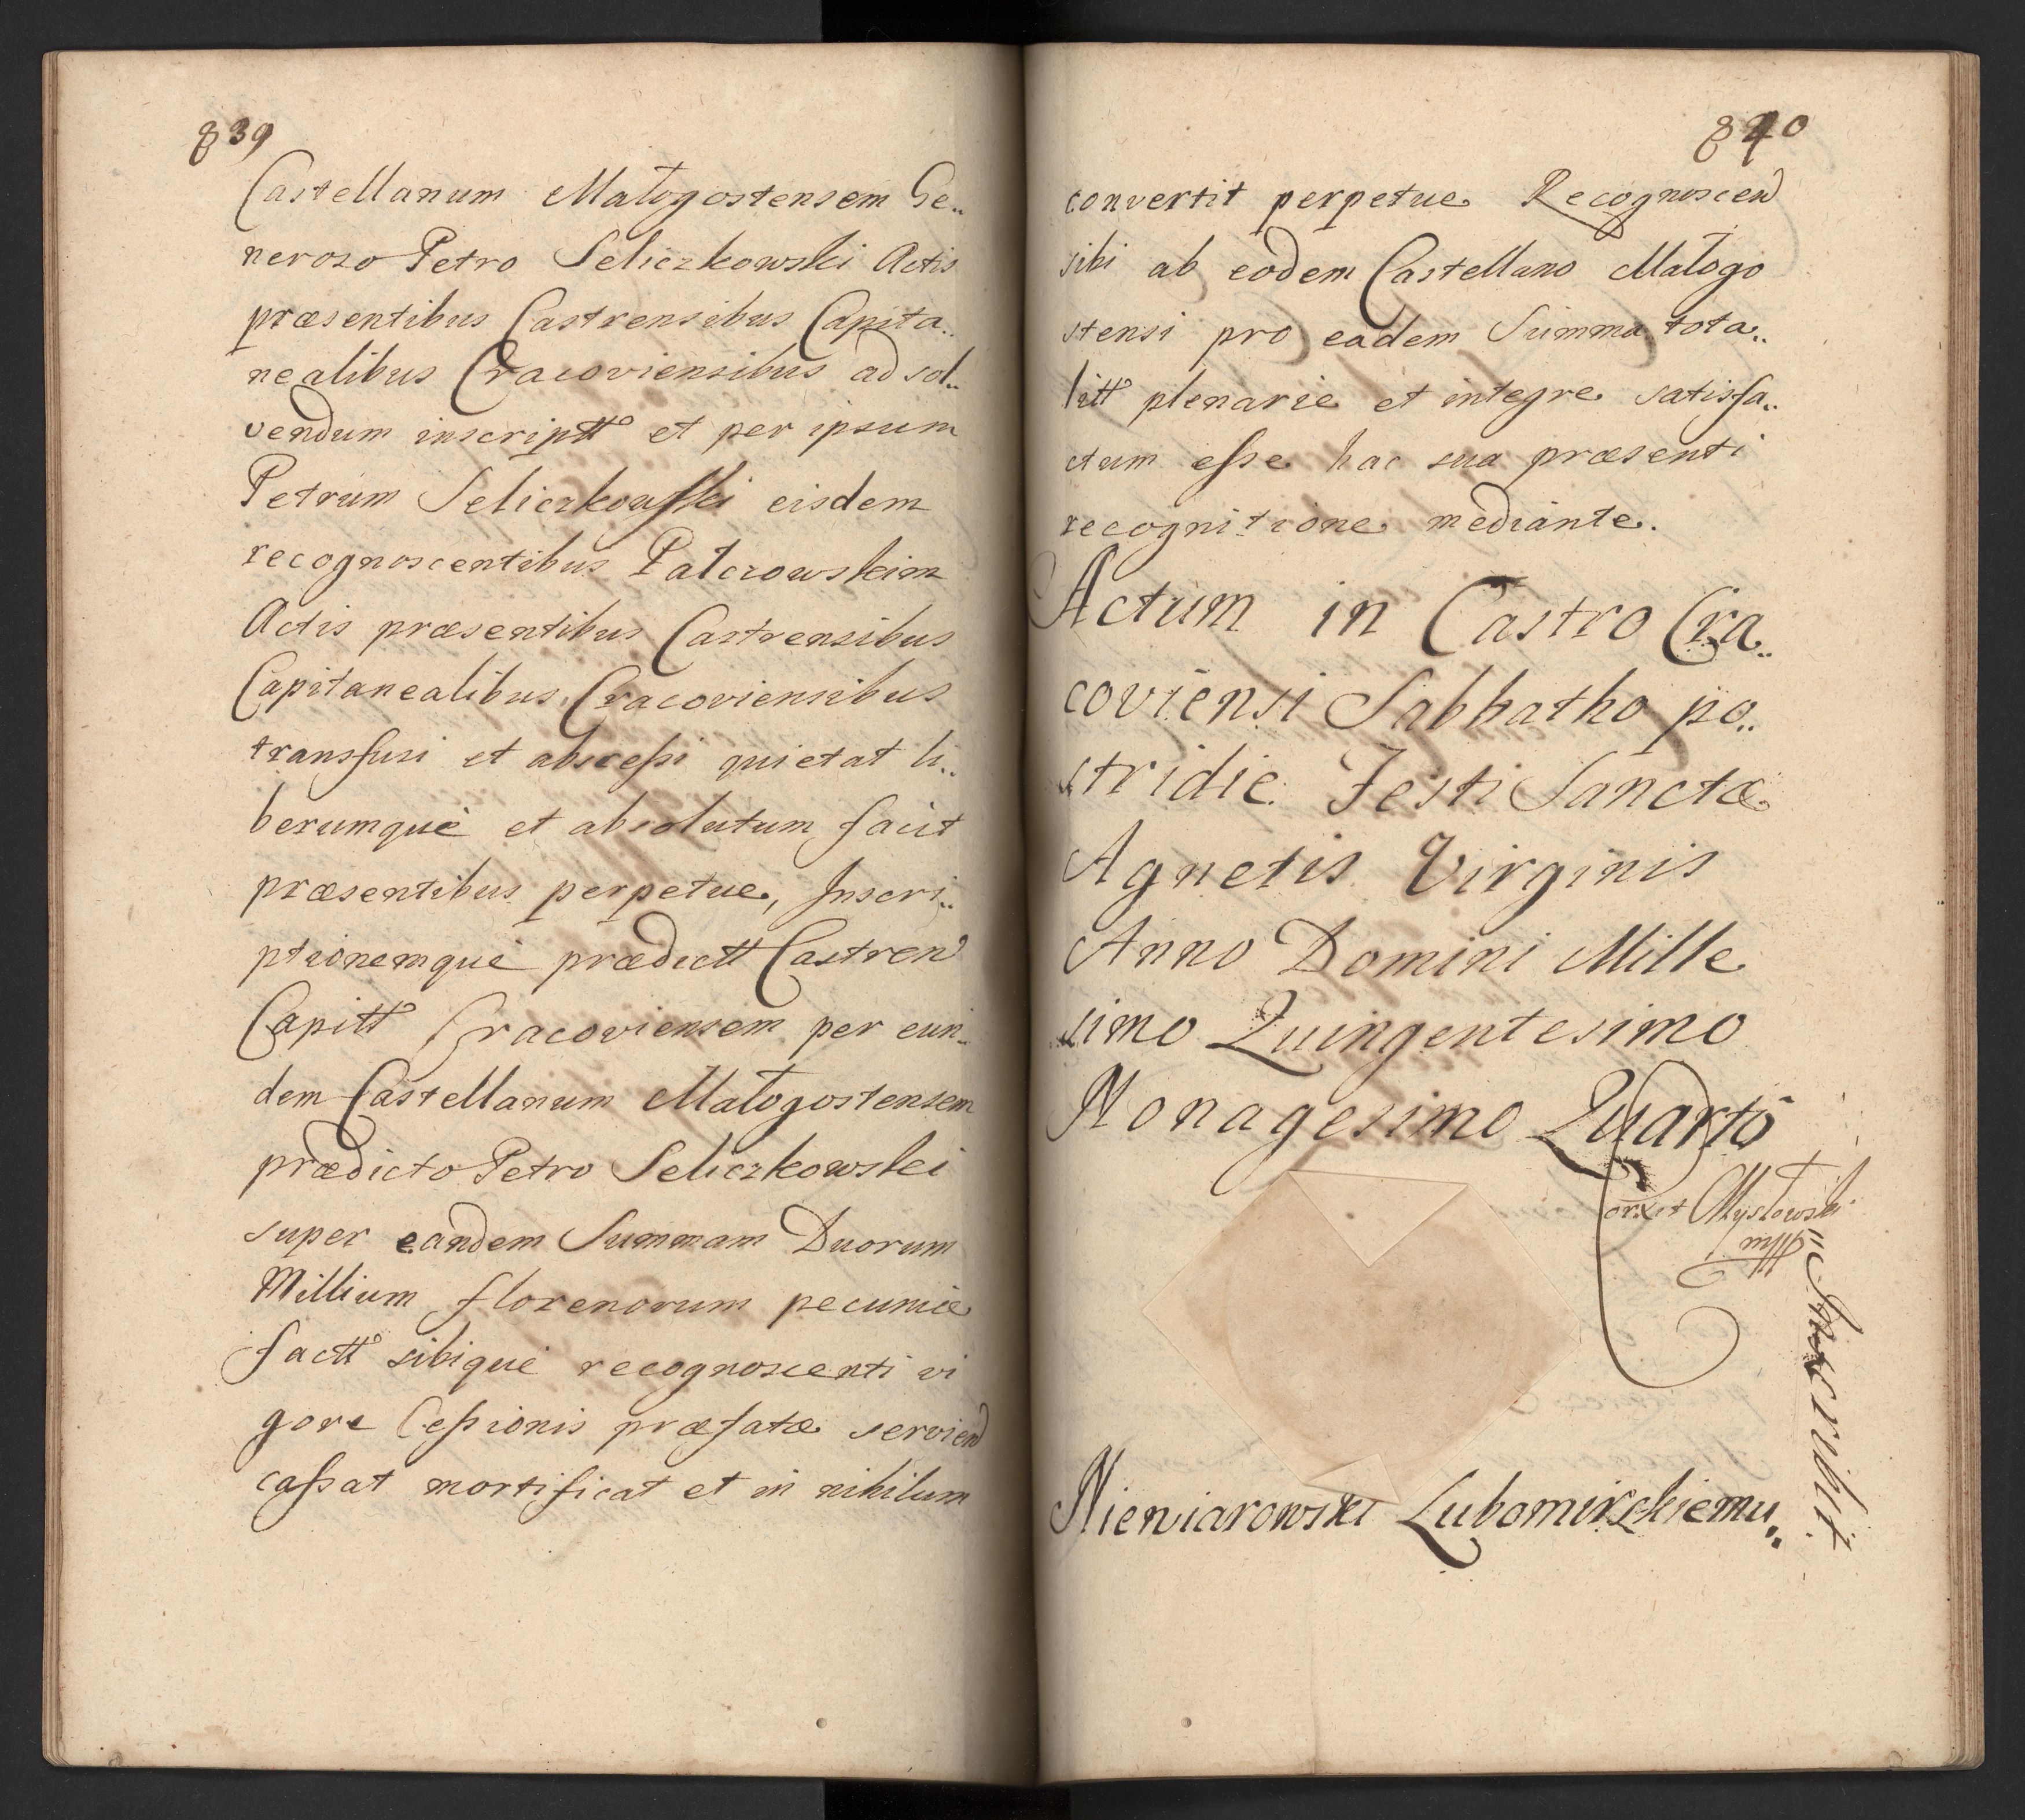 839
Castellanum Małogostensem Ge..
neroso Petro Seliczkowski Actis
præsentibus Castrensibus Capita..
nealibus Cracoviensibus ad sol..
vendum inscriptt et per ipsum
Petrum Seliczkowski eisdem
recognoscentibus Palczowskim
Actis præsentibus Castrensibus
Capitanealibus Cracoviensibus
transfusi et abscessi quietat li..
berumque et absolutum facit
præsentibus perpetue, Inscri..
ptionemque prædictt Castren
Capitt Cracoviensem per eun..
dem Castellanum Małogostensem
prædicto Petro Seliczkowski
super eandem Summam Duorum
Millium florenorum pecuniæ
factt sibique recognoscenti vi
gore Cessionis præfatæ serviend
cassat mortificat et in nihilum
840
convertit perpetue Recognoscend
sibi ab eodem Castellano Małogo
stensi pro eadem Summa tota..
litt plenarie et integre satisfa..
ctum esse hac sua præsenti
recognitione mediante.
Actum in Castro Cra..
coviensi Sabbatho po..
stridie Festi Sanctæ
Agnetis Virginis
Anno Domini Mille
simo Quingentesimo
Nonagesimo Quarto
Corrxit Mysłowski
Nieniarowski Lubomirskiemu
inscribit